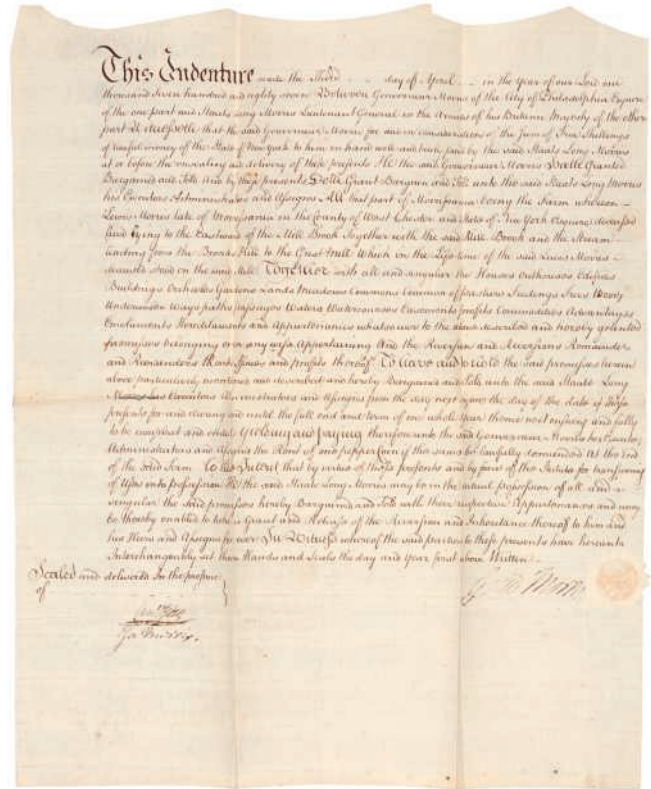 This Indenture made the Third day of April in the Year of our Lord one
thousand seven hundred and eighty seven Between Gouverneur Morris of the City of Philadelphia Esquire
of the one part and Staats Long Morris Lieutenant General in the Armies of his Britanic Majesty of the other
part Witnesseth that the said Gouverneur Morris for and in consideration of the sum of Five Shillings
of lawful money of the State of New York to him in hand well and truly paid by the said Staats Long Morris
at or before the ensealing and delivery of these presents He the said Gouverneur Morris Hath Granted
Bargained and Sold And by these presents Doth Grant Bargain and Sell unto the said Staats Long Morris
his Executors Administrators and Assigns All that part of Morrisania being the Farm whereon
Lewis Morris late of Morrisania in the County of West Chester and State of New York Esquire deceased
lived lying to the Eastward of the Mill Brook Together with the said Mill Brook and the Stream
leading from the Brook Mill to the Grist Mill which in the Life time of the said Lewis Morris
deceased stood on the said Mill Together with all and singular the Houses Outhouses Edifices
Buildings Orchards Gardens Lands Meadows Commons Common of pasture Feedings Trees Woods
Underwoods Ways paths passages Waters Watercourses Easements profits Commodities Advantages
Emoluments Hereditaments and Appurtenances whatsoever to the same described and hereby granted
premisses belonging or in any wise Appertaining And the Reversion and Reversions Remainder
and Remainders Rents Issues and profits thereof To have and to hold the said premisses herein
above particularly mentioned and described and hereby Bargained and Sold unto the said Staats Long
Morris his Executors Administrators and Assigns from the day next before the day of the date of these
presents for and during and until the full end and term of one whole Year thence next ensuing and fully
to be compleat and ended Yielding and paying therefor unto the said Gouverneur Morris his Executors
Administrators and Assigns the Rent of one peppercorn if the same be lawfully demanded At the End
of the said Term To the Intent that by virtue of these presents and by force of the Statute for transferring
of Uses into possession He the said Staats Long Morris may be in the actual possession of all and
singular the said premisses hereby Bargained and Sold with their respective Appurtenances and may
be thereby enabled to take a Grant and Release of the Reversion and Inheritance thereof to him and
his Heirs and Assigns for ever In Witness whereof the said parties to these presents have hereunto
Interchangeably set their Hands and Seals the day and Year first above Written
Sealed and delivered In the presence
of
Gouv Morris